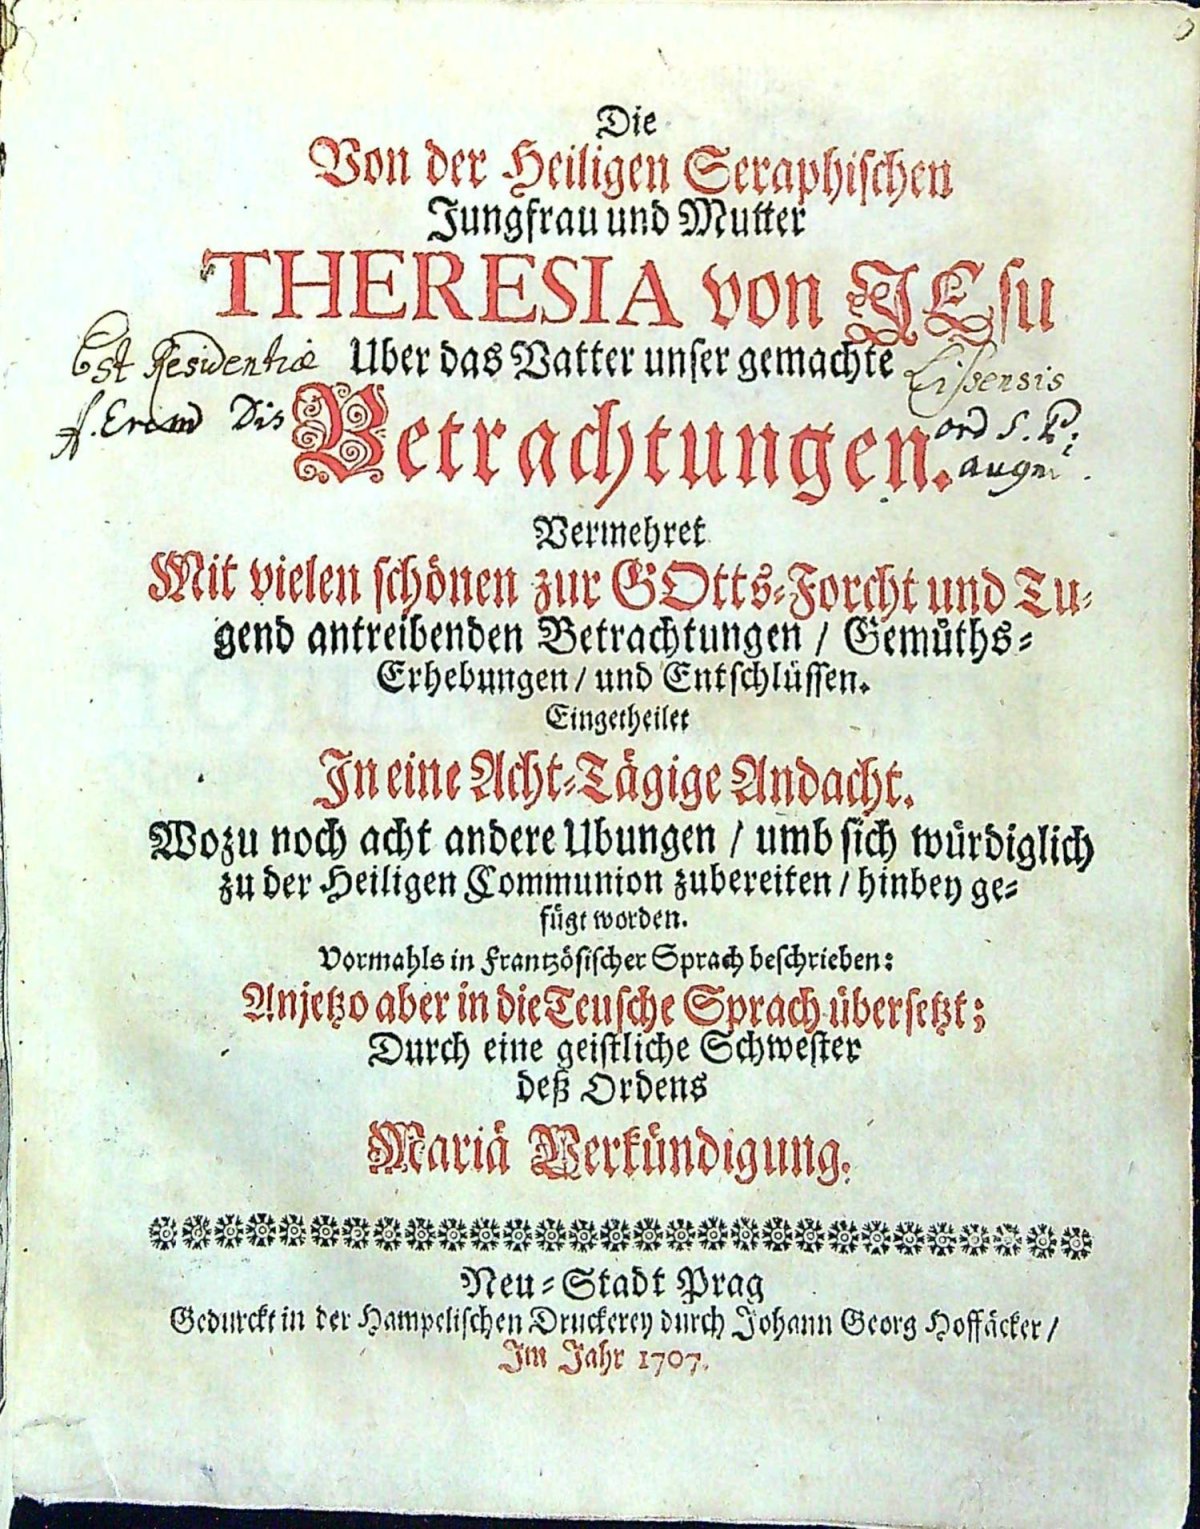 Die
Von der Heiligen Seraphischen
Jungfrau und Mutter
THERESIA von JEsu
Est Residentiæ Uber das Vatter unser gemachte Lissensis
Betrachtungen.
f. Erem Dis
ord S. P.
aug
Vermehret
Mit vielen schönen zur GOtts-Forcht und Tu-
gend antreibenden Betrachtungen / Gemüths-
Erhebungen / und Entschlüssen.
Eingetheilet
In eine Acht-Tägige Andacht.
Wozu noch acht andere Ubungen / umb sich würdiglich
zu der Heiligen Communion zubereiten / hinbey ge-
fügt worden.
Vormahls in Frantzösischer Sprach beschrieben:
Anjetzo aber in die Teusche Sprach übersetzt;
Durch eine geistliche Schwester
deß Ordens
Mariä Verkündigung.
Neu-Stadt Prag
Gedurckt in der Hampelischen Druckerey durch Johann Georg Hoffäcker /
Im Jahr 1707.